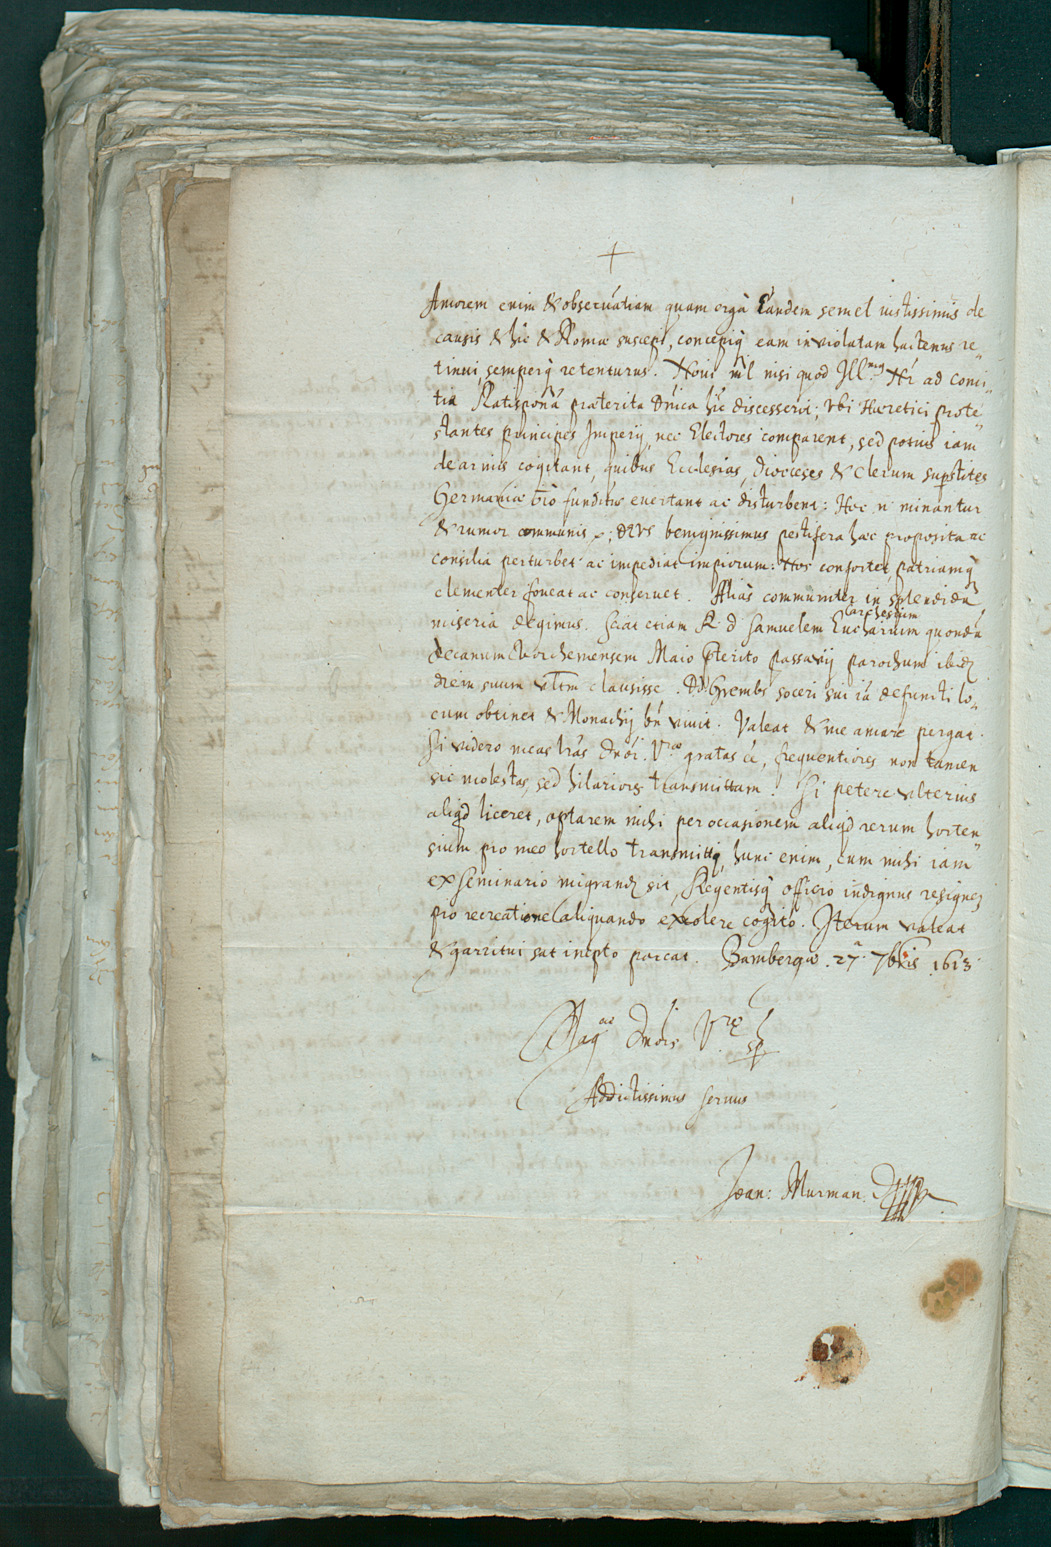 Amorem enim & obseruãtiam quam ergà Eandem semel iustissimis de
causis & hîc & Romæ suscepi, concepiq́ eam inviolatam hactenus re„
tinui, semperq́ retenturus. Noui nil nisi quod Ill.mus Nr̃ ad comi„
tia Ratisponã præterita Dnica hîc discesserit; vbi Hæretici prote„
stantes principes Imperij, nec Electores comparent, sed potius iam„
de armis cogitant, quibus Ecclesias, Diœceses & Clerum sup̱stites
Germaniæ funditus euertant ac disturbent: Hoc n̄ minantur
& rumor communis ; DEVS benignissimus pestifera hæc proposita ac
consilia perturbet ac impediat impiorum: Nos confortet, patriamq́
clementer foueat ac conseruet. Alias communiter in splendidâ
miseria degimus. Sciat etiam R. d Samuelem Eucharium quondã
Decanum Vorchemensem Maio p̃terito passavij parochum ibid
diem suum vltm clausisse. D. Grembs soceri sui iã defuncti lo„
cum obtinet & Monachij bñ viuit. Valeat & me amare pergat.
Si videro meas lrãs Dnõi. Vræ gratas eẽ, frequentiores non tamen
sic molestas, sed hilariores transmittam. Si petere vlterius
aliqd liceret, optarem mihi per occasionem aliqd rerum horten„
sium pro meo hortello transmitti, hunc enim, cum mihi iam„
ex seminario migrand sit, Regentisq́ officio indignus resignem
pro recreatione aliquando excolere cogito. Iterum valeat
& garritui sat inepto parcat. Bambergæ. 27.a 7bris 1613
Mag.cæ Dnõis Vræ
Addictissimus seruus
Joan: Murman